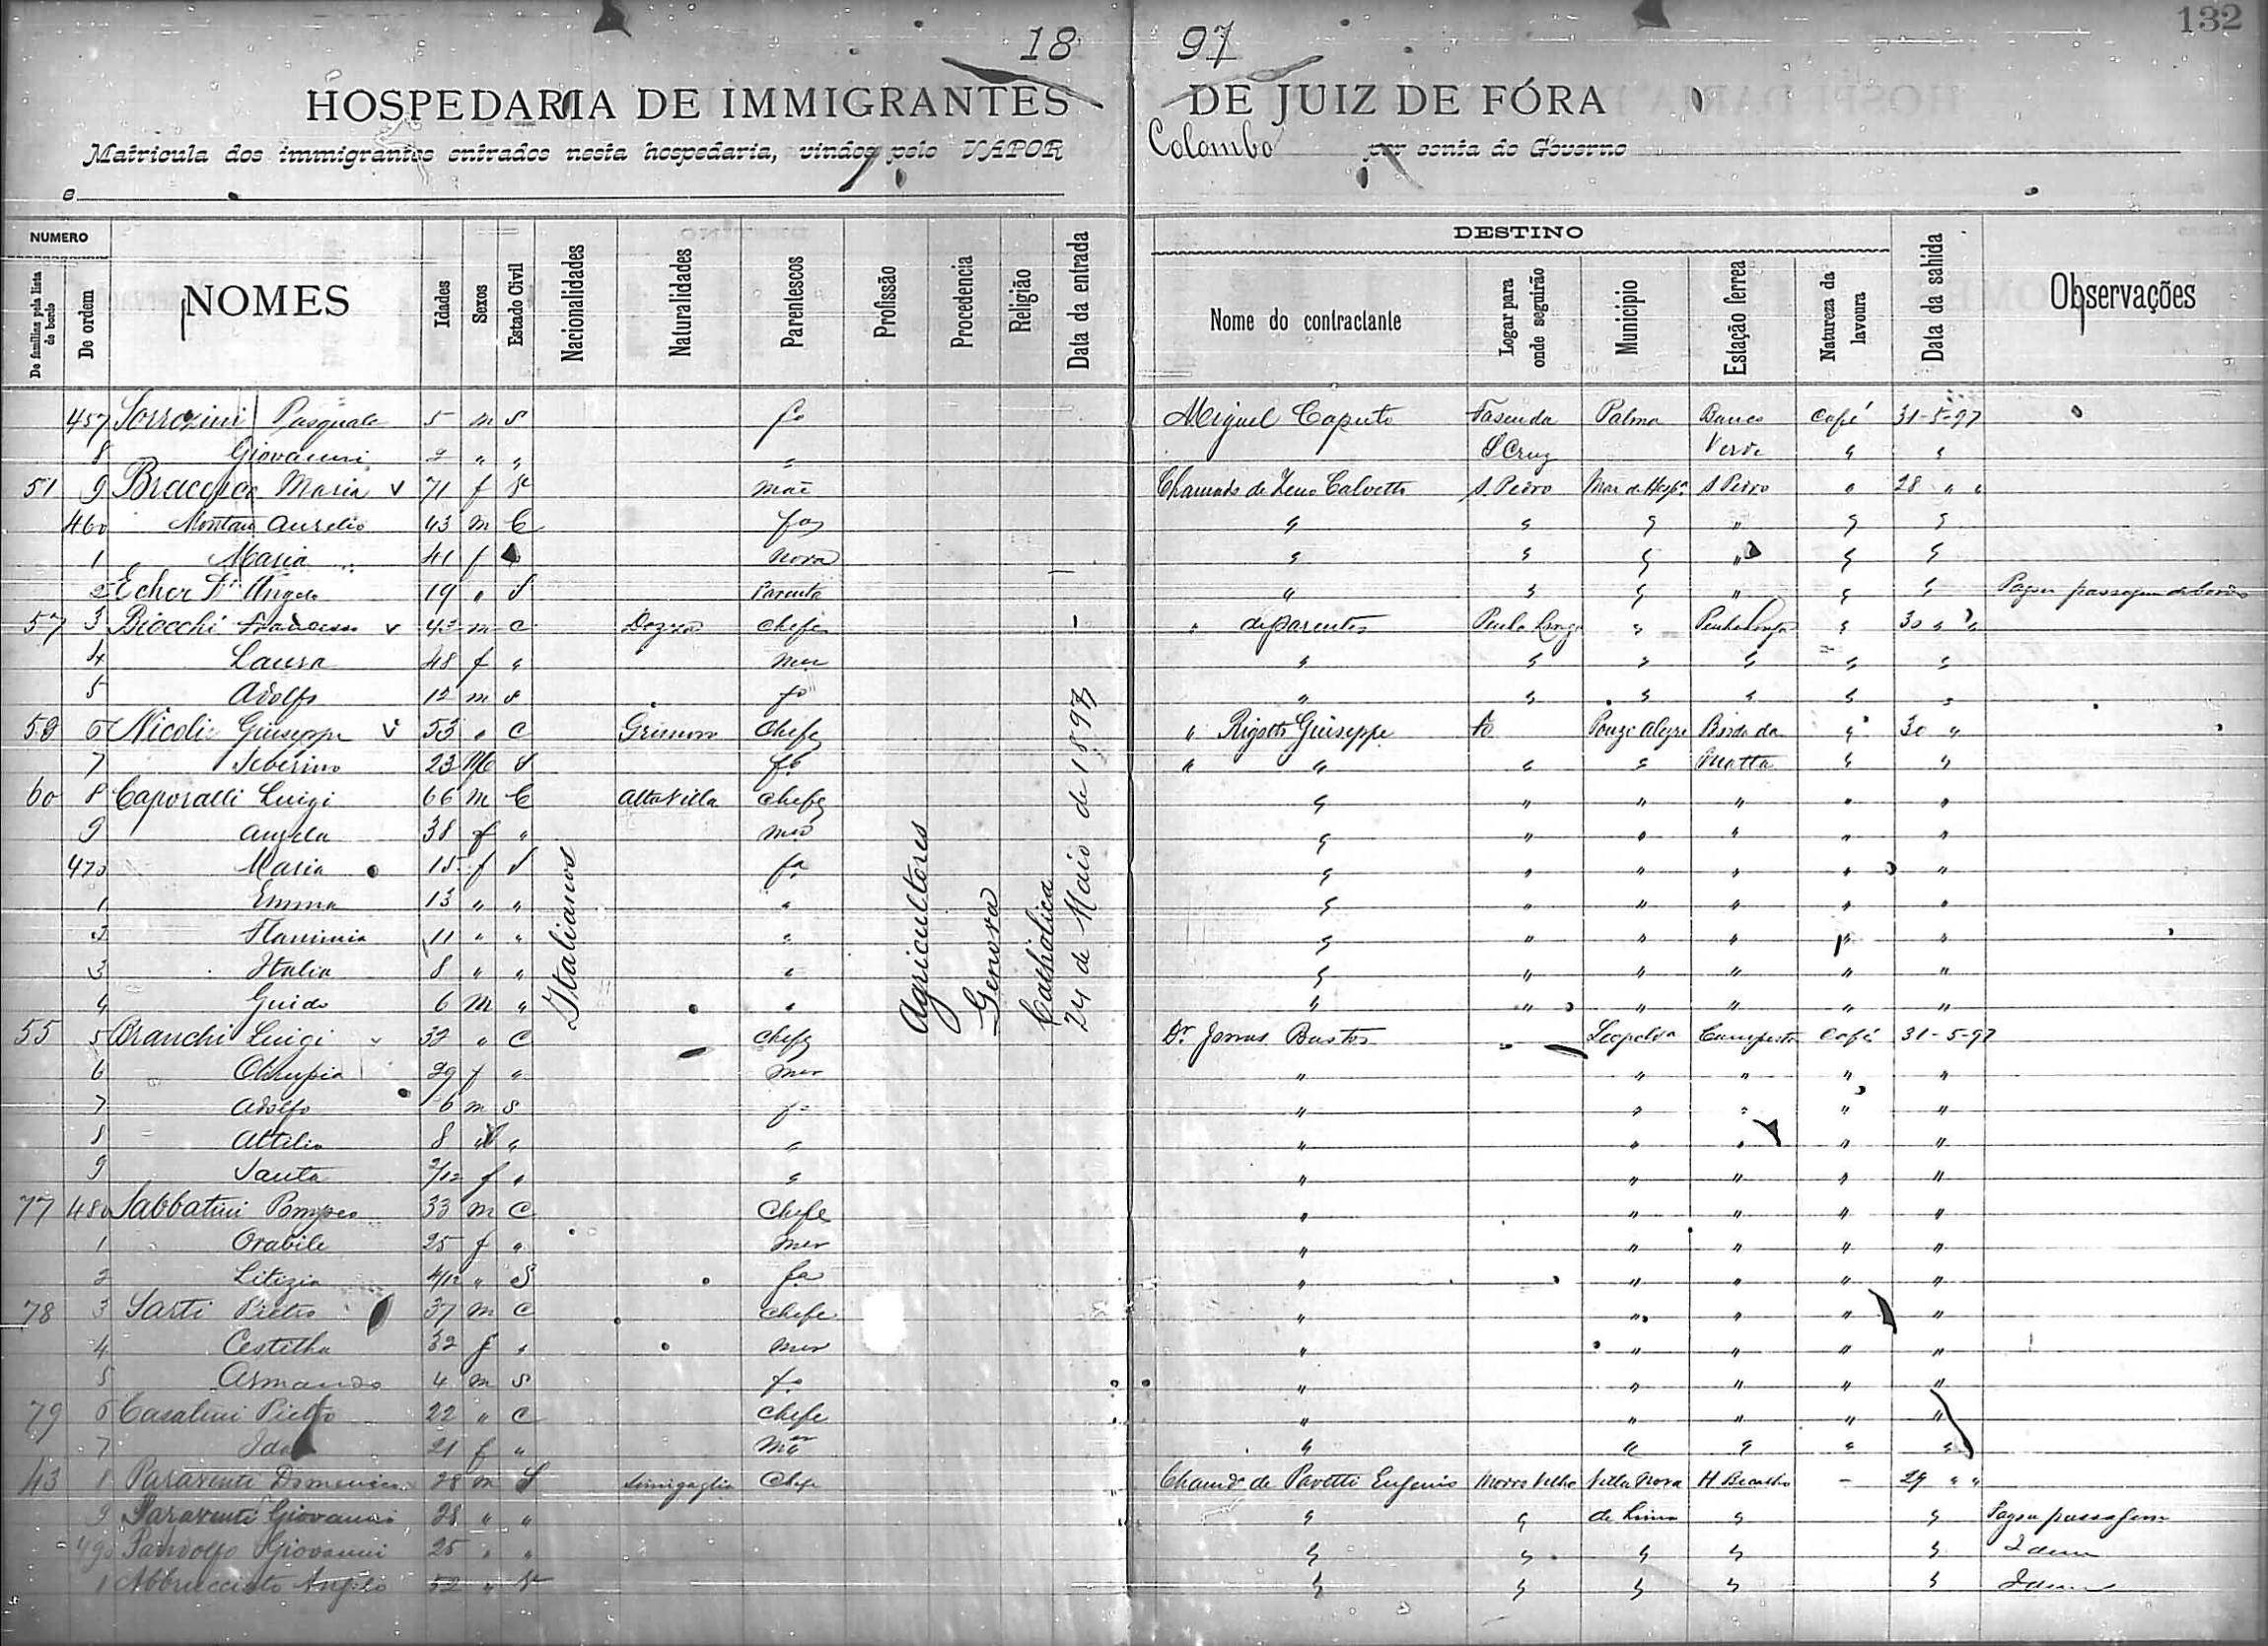 132
18 97
HOSPEDARIA DE IMMIGRANTES DE JUIZ DE FÓRA
Matricula dos immigrantes entrados nesta hospedaria, vindos pelo VAPOR Colombo por conta do Governo
e
NUMERO DESTINO
De familias pela lista de bordo De ordem NOMES Idades Sexos Estado Civil Nacionalidades Naturalidades Parentescos Profissão Procedencia Religião Data da entrada Nome do contractante Logar para onde seguirão Municipio Estação ferrea Natureza da lavoura Data da sahida Observações
Italianos Agricultores Genova Catholica 24 de Maio de 1897
457 Pasquale 5 m S fo Miguel Caputo Fasenda Palma Banco Café 31-5-97
8 Giovanni 2 " " " S Cruz Verde " "
51 9 Maria v 71 f V mãe Chamado de Zeno Calvetti S. Pedro Mar de Hespa S Pedro " 28 " "
460 Montan Aurelio 43 m C fo " " " " " "
1 Maria 41 f nora " " " " " "
2 Echer Angelo 19 " S Parente " " " " " " Pagou passagem de bordo
57 3 Biocchi Francesco v 43 m C Chefe " de parentes Penha Longa " Penha Longa " 30 " "
4 Laura 48 f " mer " " " " " "
5 Adolfo 12 m S fo " " " " " "
59 6 Nicoli Giuseppe v 53 " C Chefe " Rigotti Giuseppe Pouzo Alegre Borda da " 30 "
7 Seberino 23 M S fo " " " " Matta " "
60 8 Caporalli Luigi 66 m C Altavilla Chefe " " " " " "
9 Angela 38 f " mer " " " " " "
470 Maria 15 f S fa " " " " " "
1 Emma 13 " " " " " " " " "
2 Flaminia 11 " " " " " " " " "
3 Italia 8 " " " " " " " " "
4 Guido 6 m " " " " " " " "
55 5 Branchi Luigi v 32 " C Chefe Dr. Jonas Bastos Leopolda Campesto Café 31-5-97
6 Olimpia 29 f " mer " " " " "
7 Adolfo 6 m S fo " " " " "
8 Attilio 8 " " " " " " " "
9 Santa 2/12 f " " " " " " "
77 480 Sabbatini Pompeo 33 m C Chefe " " " " "
1 Orabile 25 f " mer " " " " "
2 Litizia 4/12 " S fa " " " " "
78 3 Sarti Pietro 37 m C Chefe " " " " "
4 Cestilha 32 f " mer " " " " "
5 Armando 4 m S fo " " " " "
79 6 Casalini Pietro 22 " C Chefe " " " " "
7 Ida 21 f " mer " " " " "
43 8 Paraventi Domenico 28 m S Sinigaglia Chefe Chamdo de Pavetti Eugenio Morro Velho Villa Nova H Bicalho - 29 " "
9 Paraventi Giovanni 28 " " " " de Lima " " Pagou passagem
490 Pandolfo Giovanni 25 " " " " " " " Idem
1 Abbrucciato Angelo 52 " V " " " " " Idem